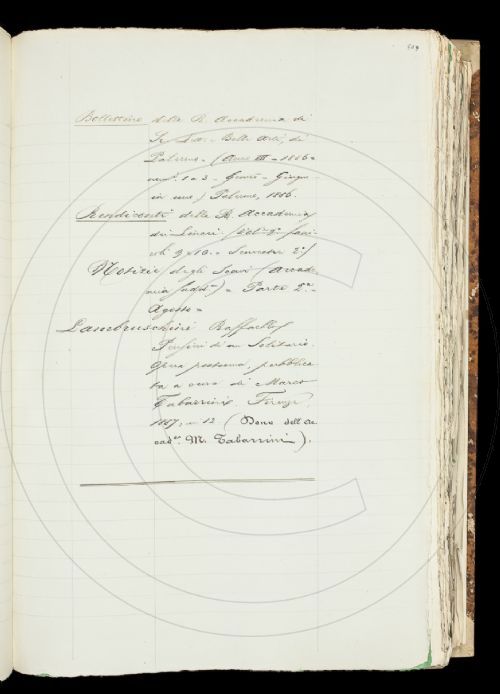 Bollettino della R. Accademia di
Sc. Lett. e Belle Arti, di
Palermo. (Anno III = 1886 =
num. 1 a 3 - Genn. - Giugno
in uno) Palermo, 1886.
Rendiconti della R. Accademia
dei Lincei (Vol. 2° fasci-
coli 9, 10 - Semestre 2°)
Notizie degli Scavi (Accade-
mia sudd.ta) = Parte 2ª =
Agosto =
Lambruschini Raffaello
Pensieri di un Solitario.
Opera postuma, pubblica-
ta a cura di Marco
Tabarrini. Firenze,
1887, in 12. (Dono dell'Ac-
cad.co M. Tabarrini).